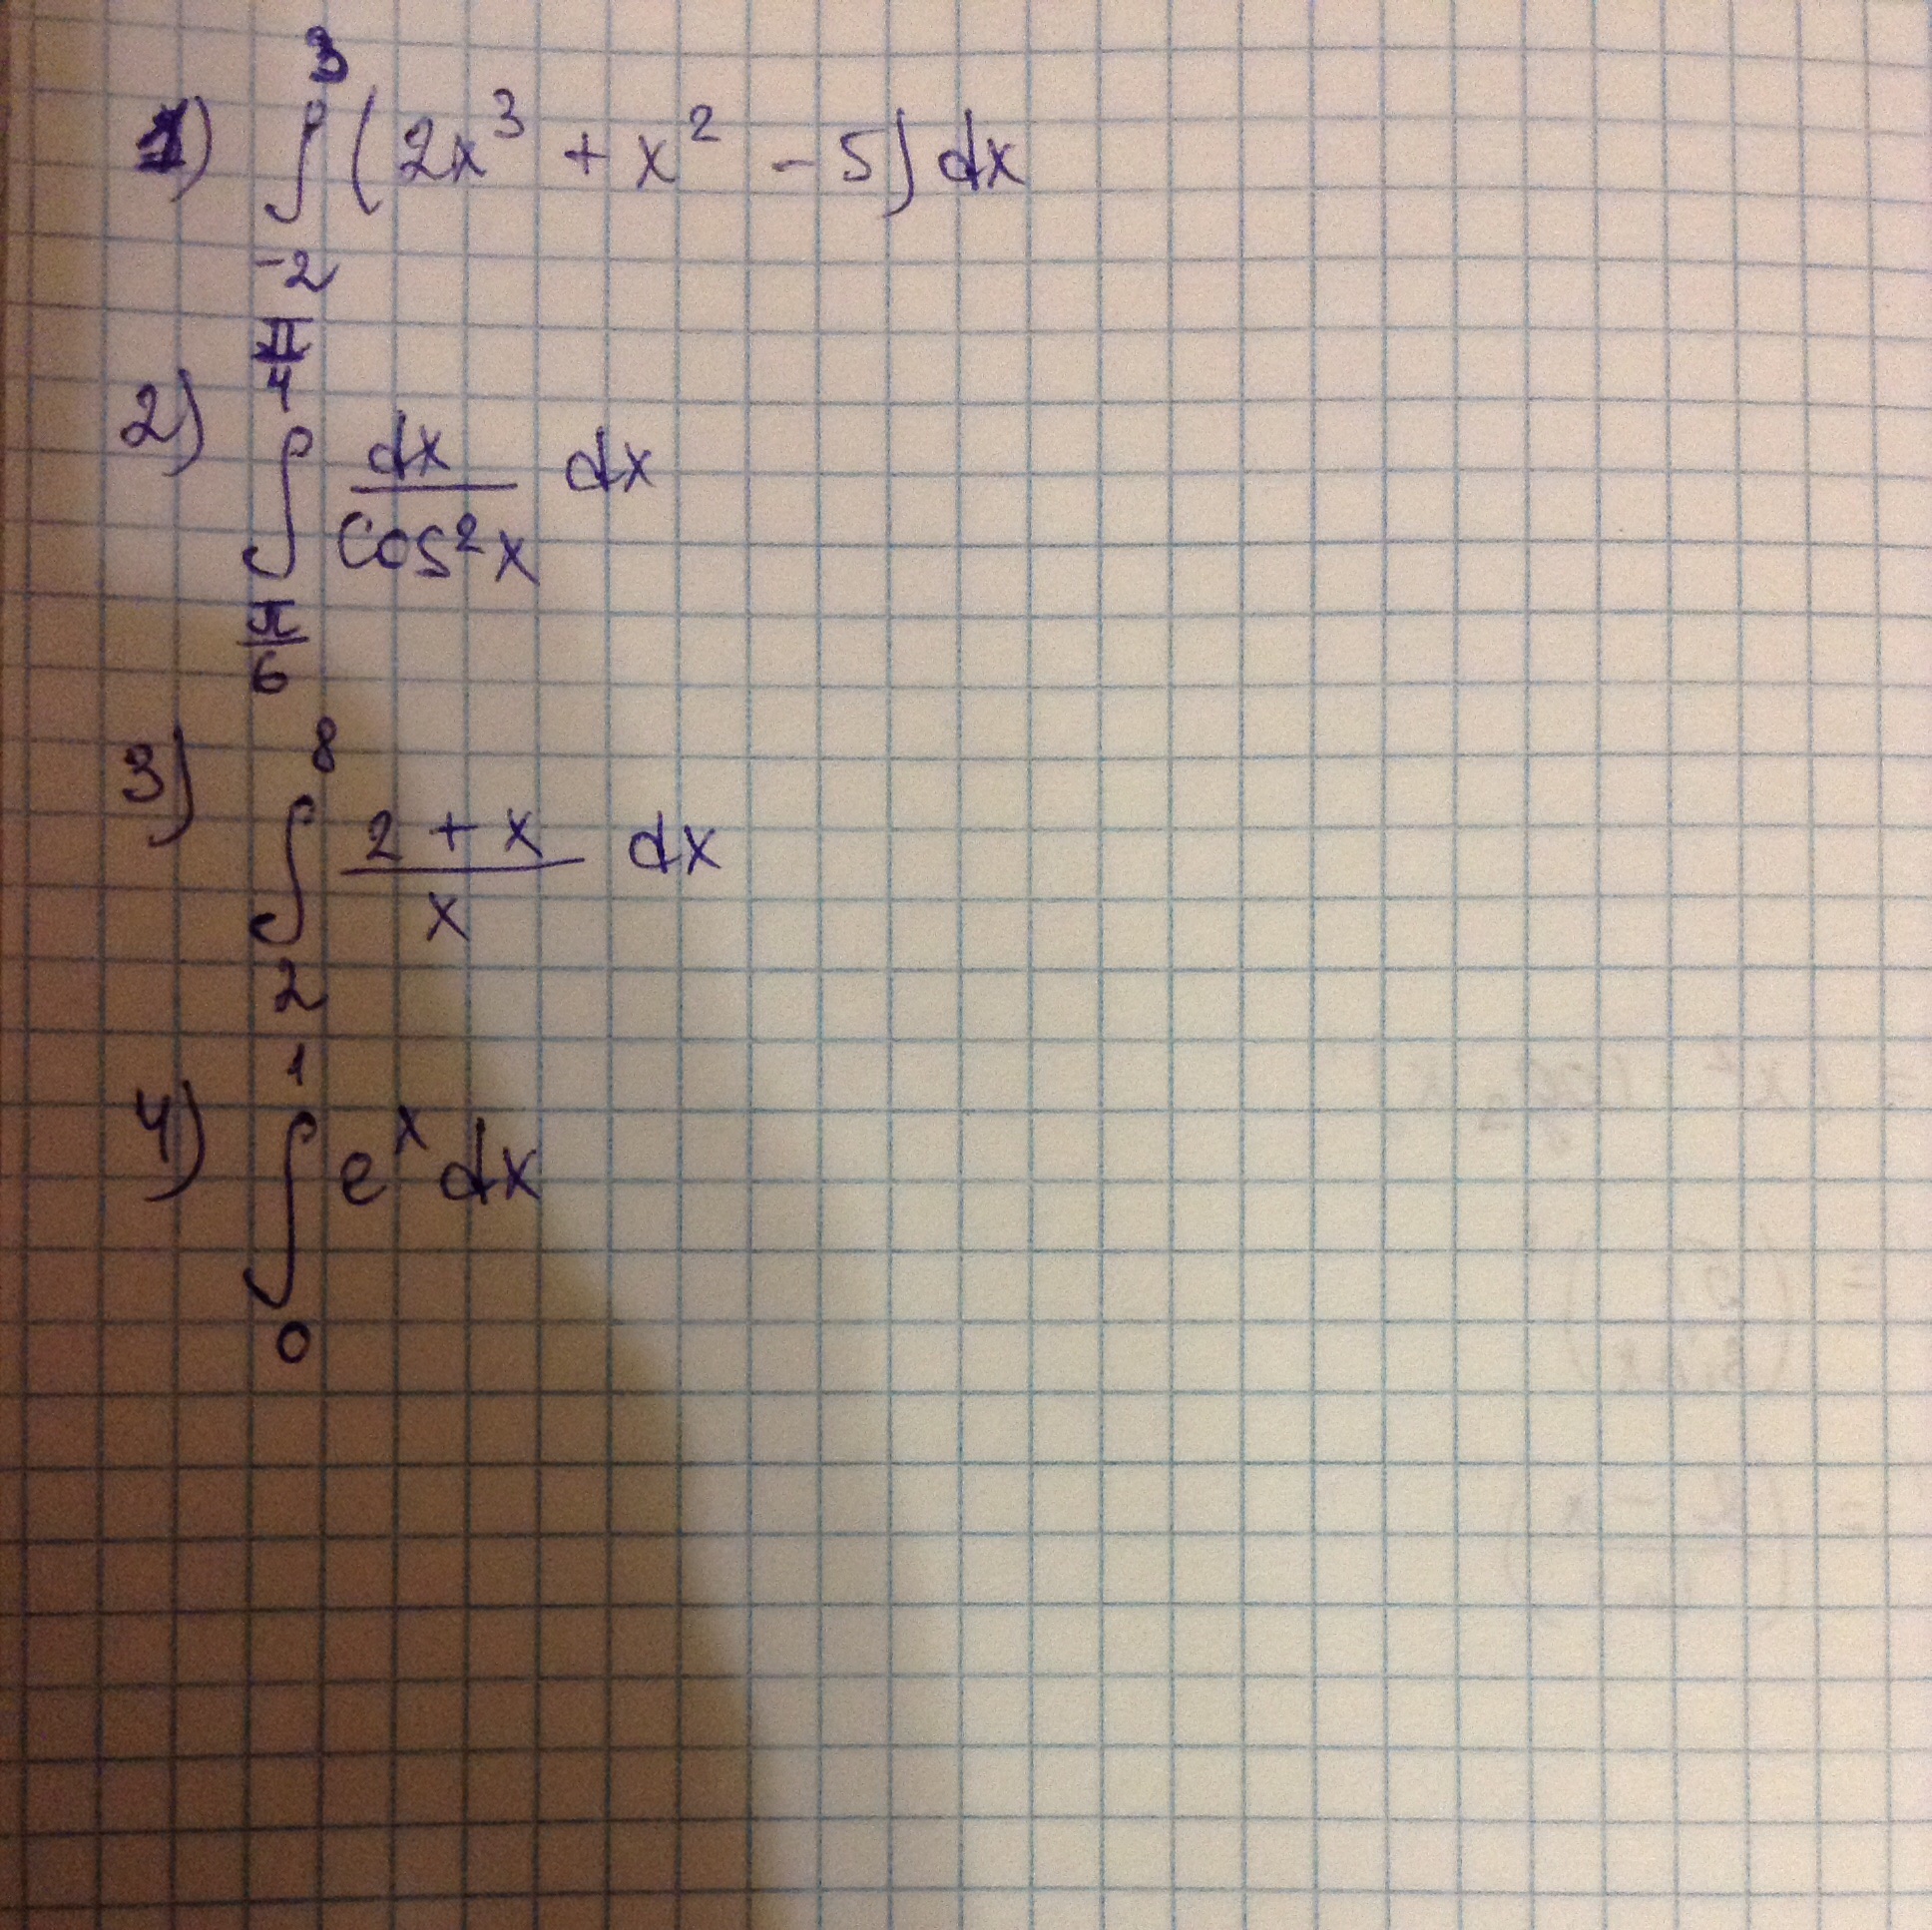 1) ∫₋₂³ (2x³ + x² - 5) dx
2) ∫_{π/6}^{π/4} dx/cos²x dx
3) ∫₂⁸ (2 + x)/x dx
4) ∫₀¹ eˣ dx